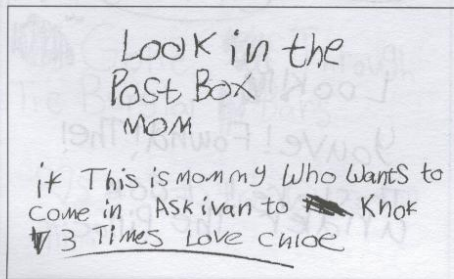 Look in the
Post Box
MOM
if This is mommy Who Wants to
come in Ask ivan to Knok
3 Times Love Chloe